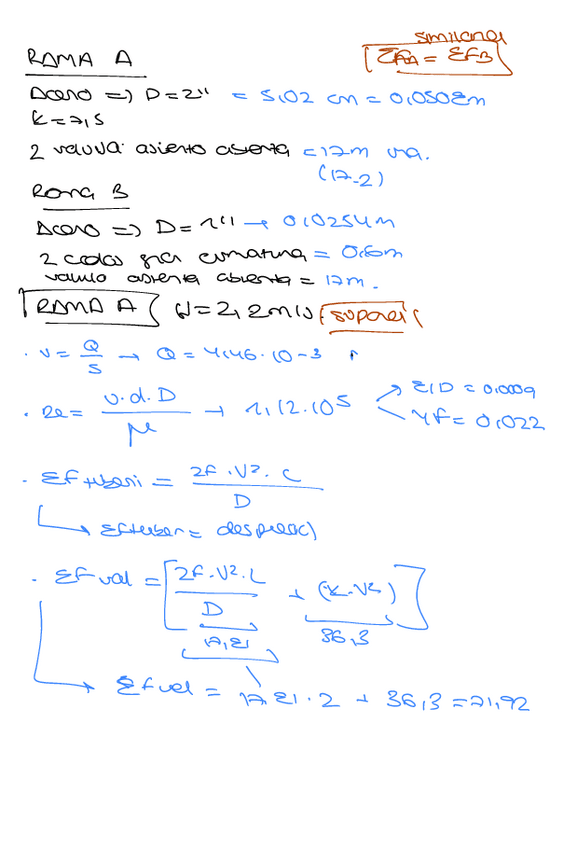 similares
RAMA A
ΣFA = ΣFB
Acero => D=2" = 5,02 cm = 0,0508m
K=7,5
2 valvula asiento abierta = 17m una.
(17·2)
Rama B
Acero => D=1" → 0,0254m
2 codos gran curvatura = 0,6m
valvula asiento abierta = 17m.
RAMA A V=2,2m/s (supone)
· v = Q/S → Q = 4,46·10-3
· Re = v·d·D/μ → 1,12·105
ε/D = 0,0009
4f = 0,022
· ΣF tuberi = 2f·V²·L/D
ΣFtuber = despreci
· ΣFval = [2f·V²·L/D + (K·V²)]
17,81 36,3
ΣFval = 17,81·2 + 36,3 = 71,92